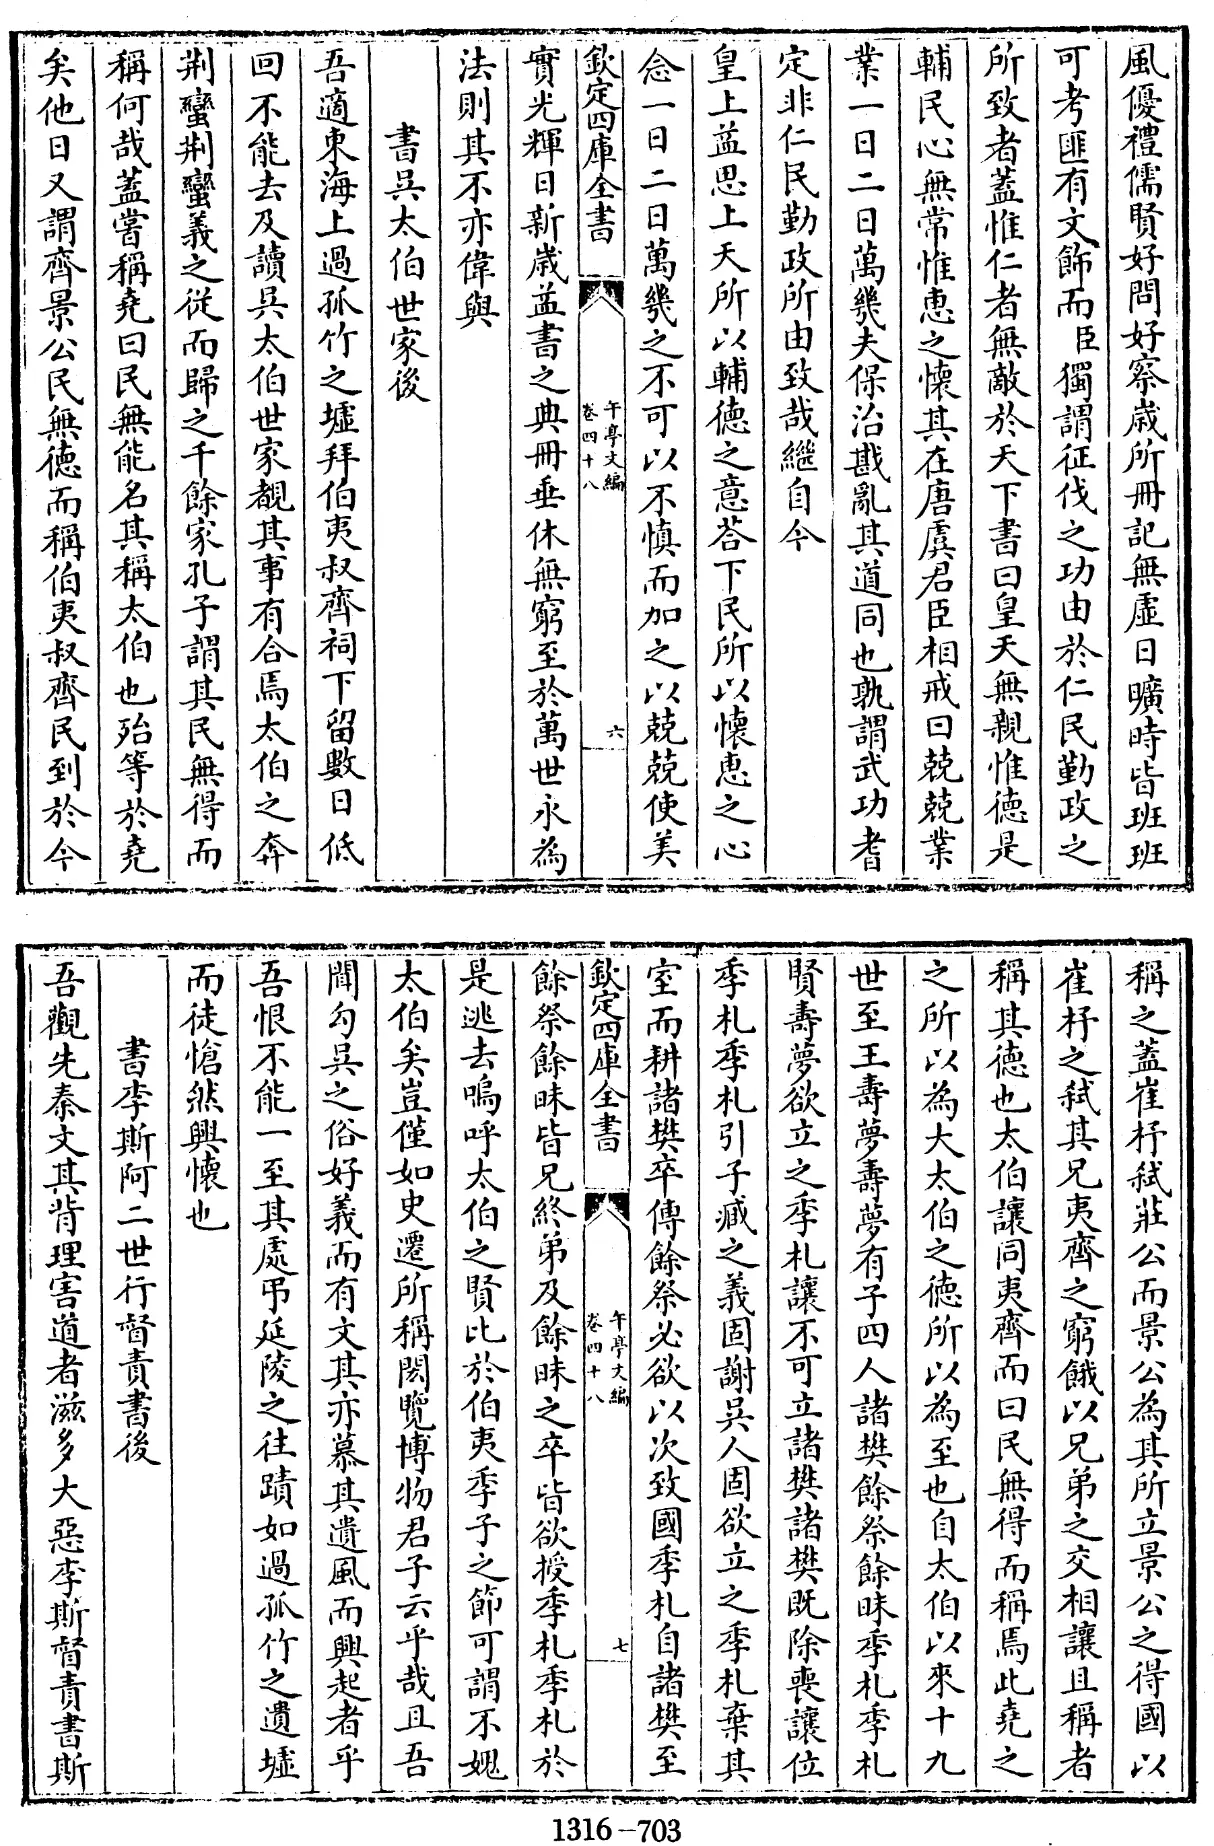 風優禮儒賢好問好察歳所冊記無虛日曠時皆班班
可考匪有文飾而臣獨謂征伐之功由於仁民勤政之
所致者蓋惟仁者無敵於天下書曰皇天無親惟德是
輔民心無常惟恵之懐其在唐虞君臣相戒曰兢兢業
業一日二日萬幾夫保治戡亂其道同也孰謂武功耆
定非仁民勤政所由致哉繼自今
皇上益思上天所以輔德之意荅下民所以懐恵之心
念一日二日萬幾之不可以不慎而加之以兢兢使美
欽定四庫全書
午亭文編
卷四十八
六
實光輝日新歳益書之典冊垂休無窮至於萬世永為
法則其不亦偉與
書吳太伯世家後
吾適東海上過孤竹之墟拜伯夷叔齊祠下留數日低
回不能去及讀吳太伯世家覩其事有合焉太伯之奔
荆蠻荆蠻義之從而歸之千餘家孔子謂其民無得而
稱何哉蓋嘗稱堯曰民無能名其稱太伯也殆等於堯
矣他日又謂齊景公民無徳而稱伯夷叔齊民到於今
稱之蓋崔杼弑莊公而景公為其所立景公之得國以
崔杼之弑其兄夷齊之窮餓以兄弟之交相讓且稱者
稱其德也太伯讓同夷齊而曰民無得而稱焉此堯之
之所以為大太伯之德所以為至也自太伯以來十九
世至王壽夢壽夢有子四人諸樊餘祭餘昧季札季札
賢壽夢欲立之季札讓不可立諸樊諸樊既除喪讓位
季札季札引子臧之義固謝吳人固欲立之季札棄其
室而耕諸樊卒傳餘祭必欲以次致國季札自諸樊至
欽定四庫全書
午亭文編
卷四十八
七
餘祭餘昧皆兄終弟及餘昧之卒皆欲授季札季札於
是逃去嗚呼太伯之賢比於伯夷季子之節可謂不媿
太伯矣豈僅如史遷所稱閎覽博物君子云乎哉且吾
聞勾吳之俗好義而有文其亦慕其遺風而興起者乎
吾恨不能一至其處弔延陵之往蹟如過孤竹之遺墟
而徒愴然興懐也
書李斯阿二世行督責書後
吾觀先秦文其背理害道者滋多大惡李斯督責書斯
1316-703